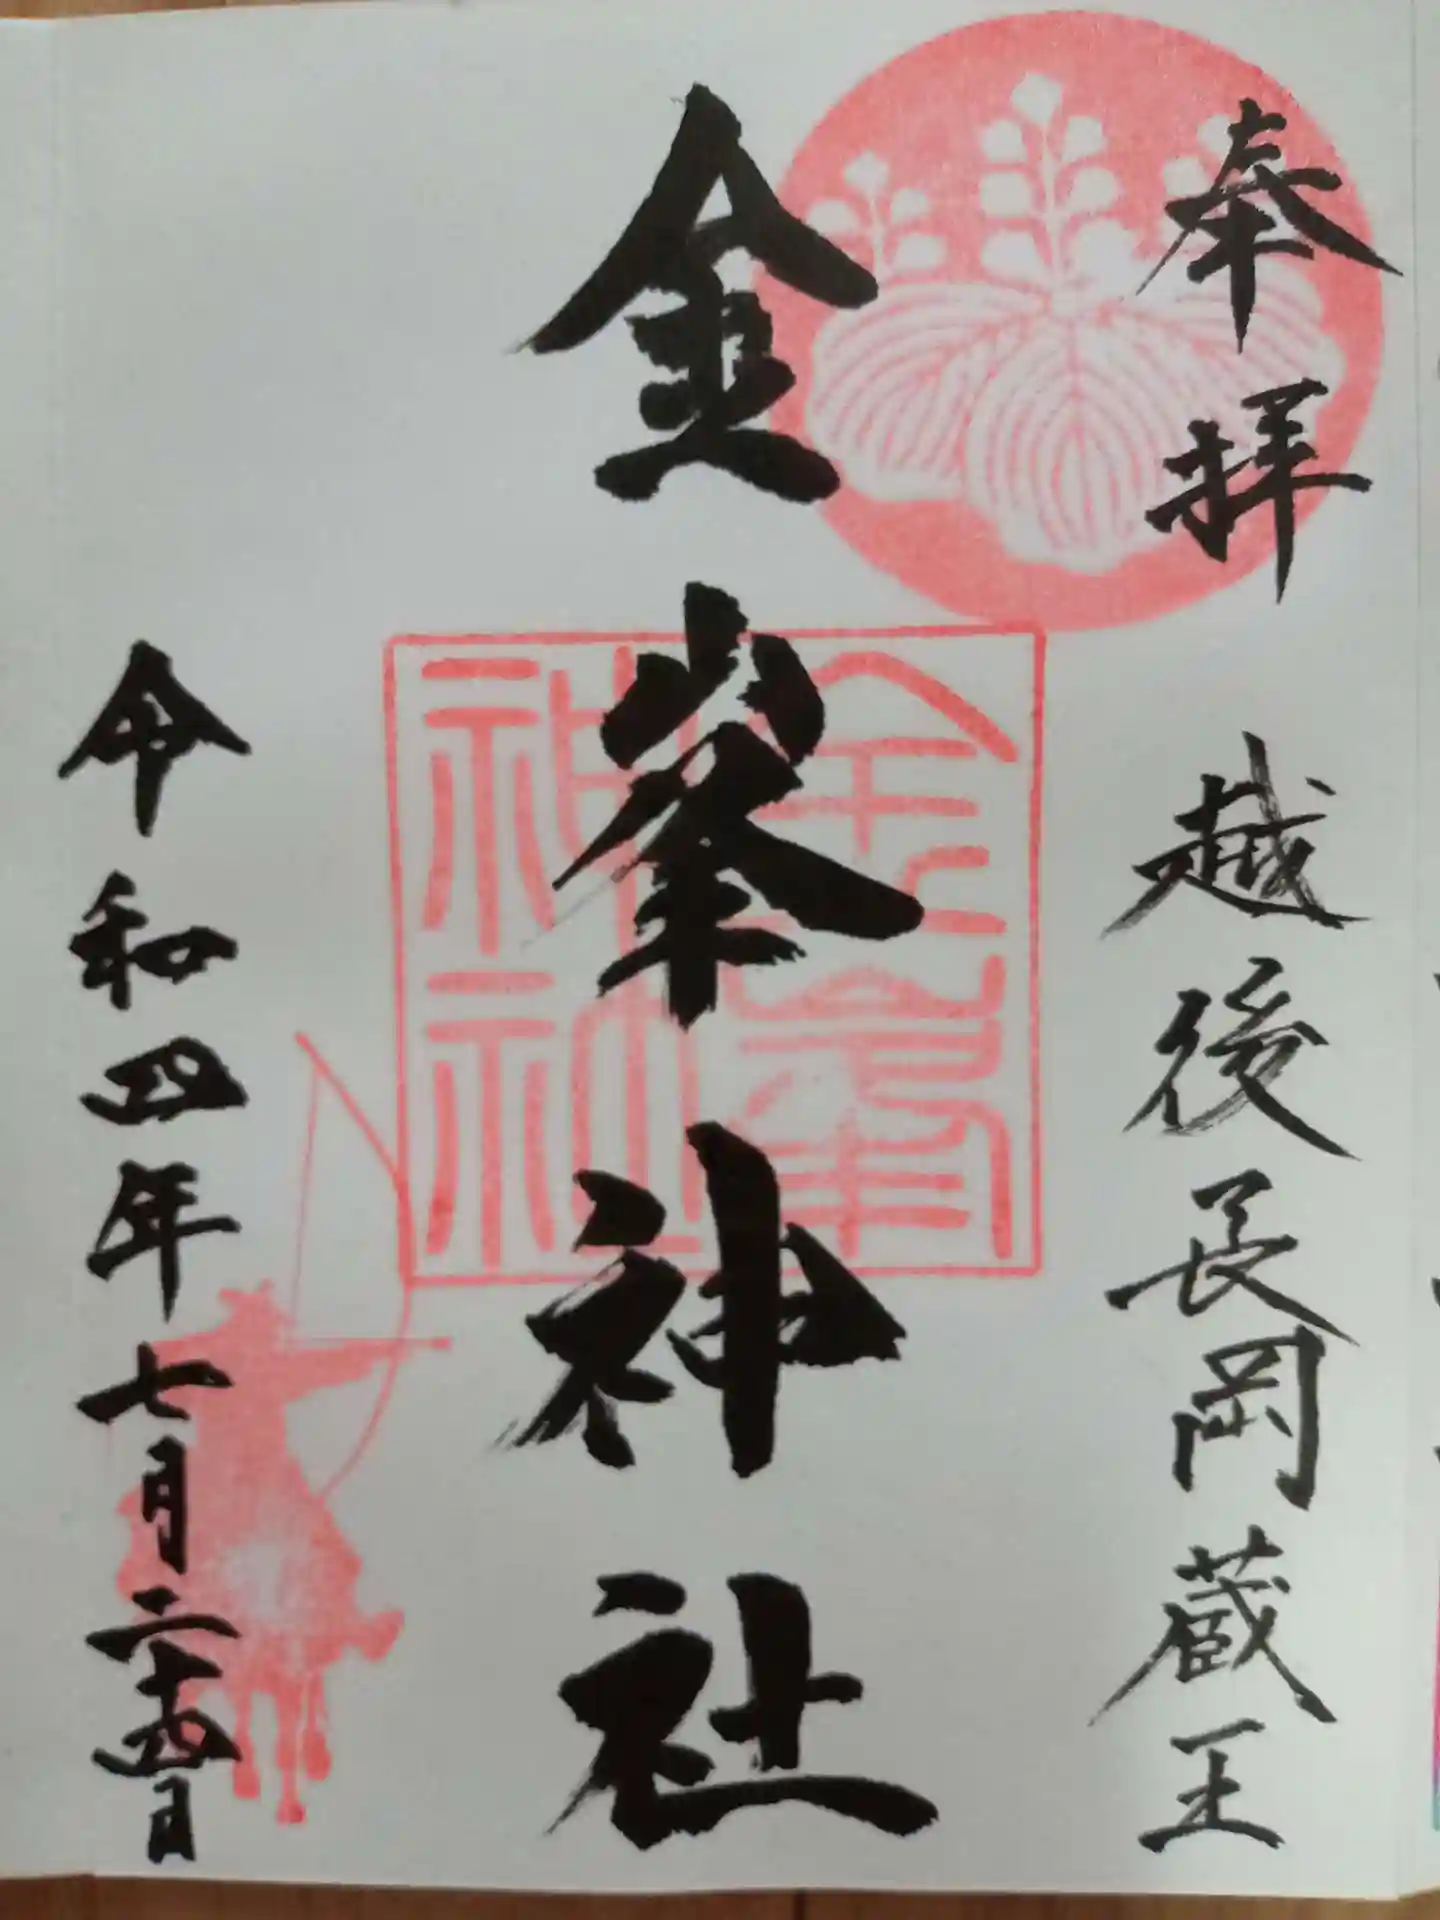 奉拝 越後長岡蔵王
金峯神社
金峯神社
令和四年七月二十四日